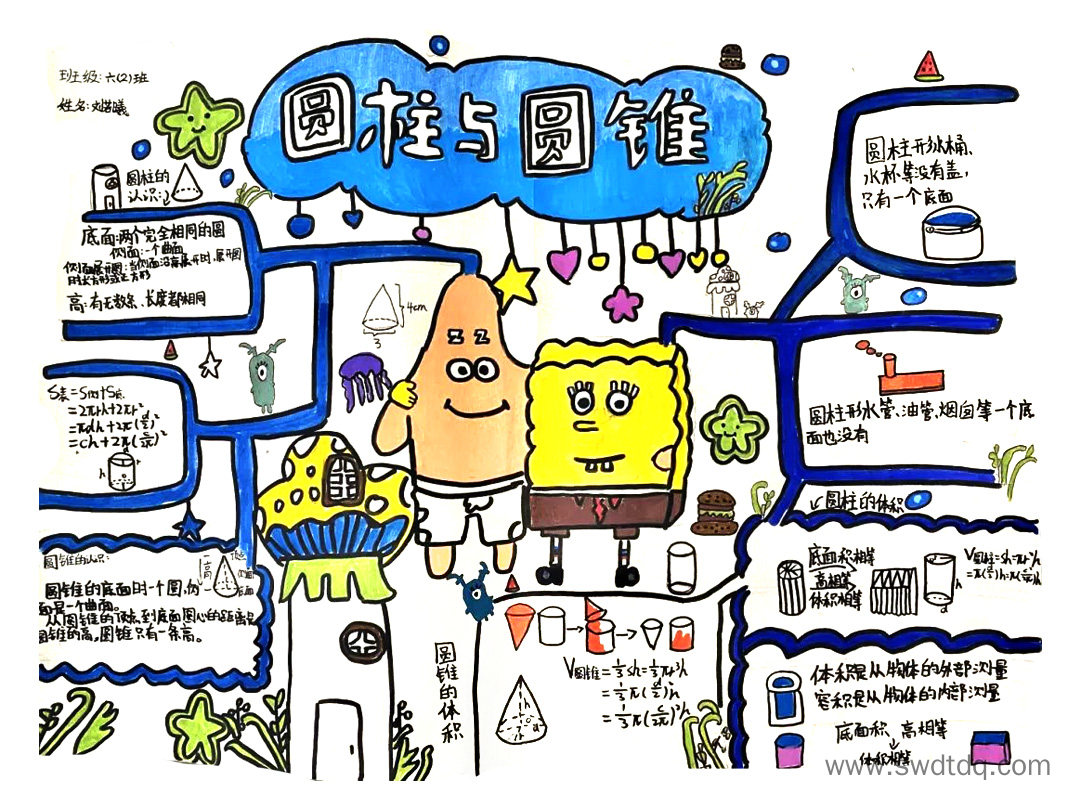 班级:六(2)班
姓名:刘若曦
圆柱与圆锥
圆柱的
认识:
底面:两个完全相同的圆
侧面:一个曲面
侧面展开图:当侧面沿高展开时,展开图
是长方形或正方形
高:有无数条,长度都相同
S表=S侧+S底
=2πrh+2πr²
=πdh+2π(d/2)²
=ch+2π(c/2π)²
圆锥的认识:
高
圆锥的底面时一个圆,侧
面是一个曲面。
从圆锥的顶点到底面圆心的距离是
圆锥的高,圆锥只有一条高。
4cm
3
圆锥的体积
V圆锥=⅓sh=⅓πr²h
=⅓π(d/2)²h
=⅓π(c/2π)²h
圆柱形水桶、
水杯等没有盖,
只有一个底面
圆柱形水管、油管、烟囱等一个底
面也没有
圆柱的体积
底面积相等
高相等
体积相等
V圆柱=sh=πr²h
=π(d/2)²h=π(c/2π)²h
体积是从物体的外部测量
容积是从物体的内部测量
底面积、高相等
体积相等
www.swdtdq.com